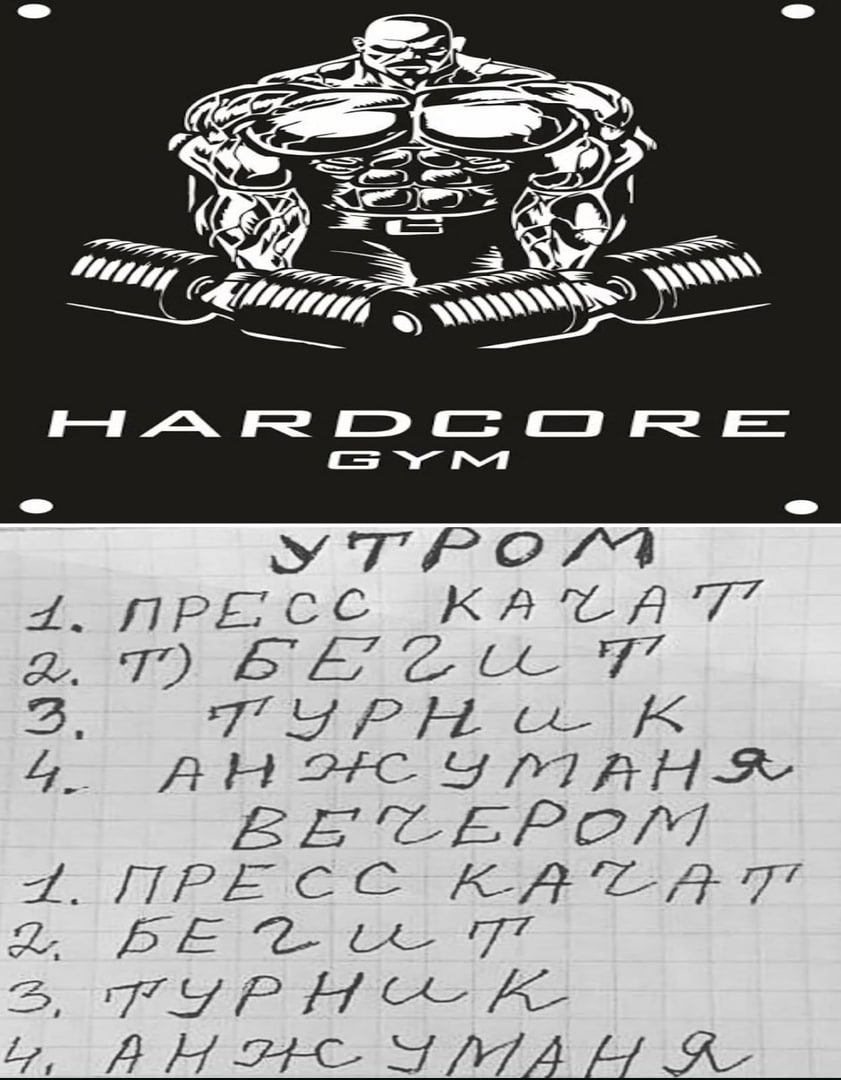 HARDCORE
GYM
УТРОМ
1. ПРЕСС КАЧАТ
2. Т) БЕГИТ
3. ТУРНИК
4. АНЖУМАНЯ
ВЕЧЕРОМ
1. ПРЕСС КАЧАТ
2. БЕГИТ
3. ТУРНИК
4. АНЖУМАНЯ